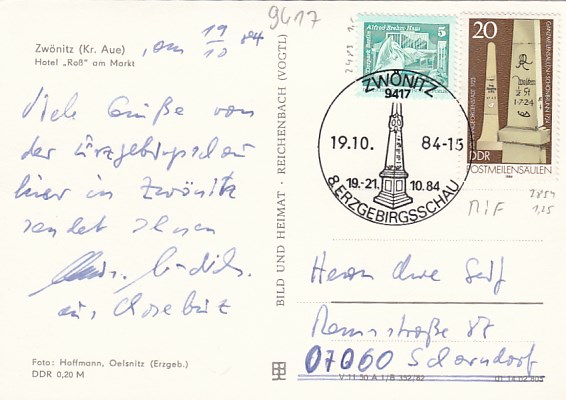 9417
Zwönitz (Kr. Aue)
Hotel „Roß" am Markt
, am 19/10 84
Viele Grüße von
der Erzgebirgschau
hier in Zwönitz
sendet Ihnen
aus
Foto: Hoffmann, Oelsnitz (Erzgeb.)
DDR 0,20 M
BILD UND HEIMAT · REICHENBACH (VOGTL)
Alfred Brehm Haus
5
Tierpark Berlin
20
1724
DDR
POSTMEILENSÄULEN
ZWÖNITZ
9417
19.10. 84-15
19.-21. 10.84
8. ERZGEBIRGSSCHAU
MiF
1,25
Herrn Uwe Seif
07060 Schorndorf
V 11 50 A 1/B 392/82
01 14 02 805